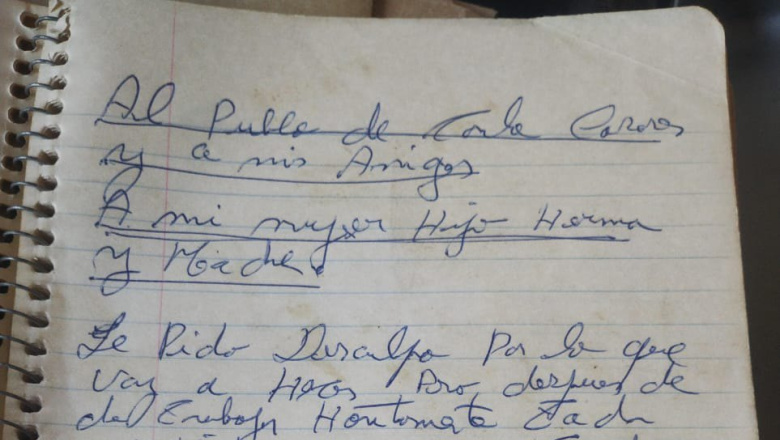 Al Pueblo de Carlos Casares
y a mis Amigos
A mi mujer Hijo Herma
y Madre.
Le Pido Disculpa Por lo que
voy a Hacer Pero despues de
de Trabajar Honto